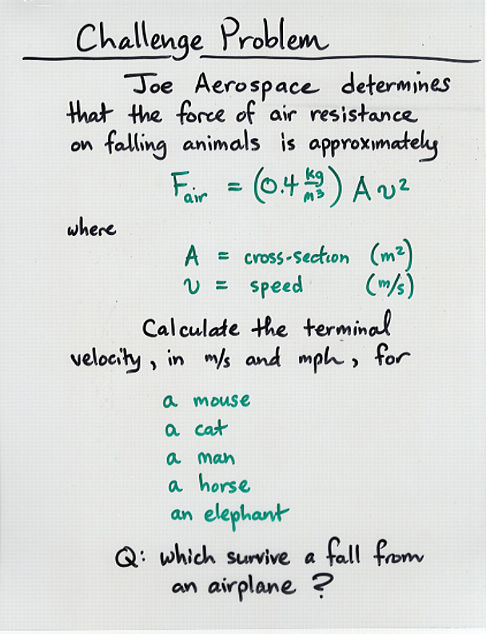 Challenge Problem
Joe Aerospace determines
that the force of air resistance
on falling animals is approximately
F_air = (0.4 kg/m³) A v²
where
A = cross-section (m²)
v = speed (m/s)
Calculate the terminal
velocity, in m/s and mph, for
a mouse
a cat
a man
a horse
an elephant
Q: which survive a fall from
an airplane ?